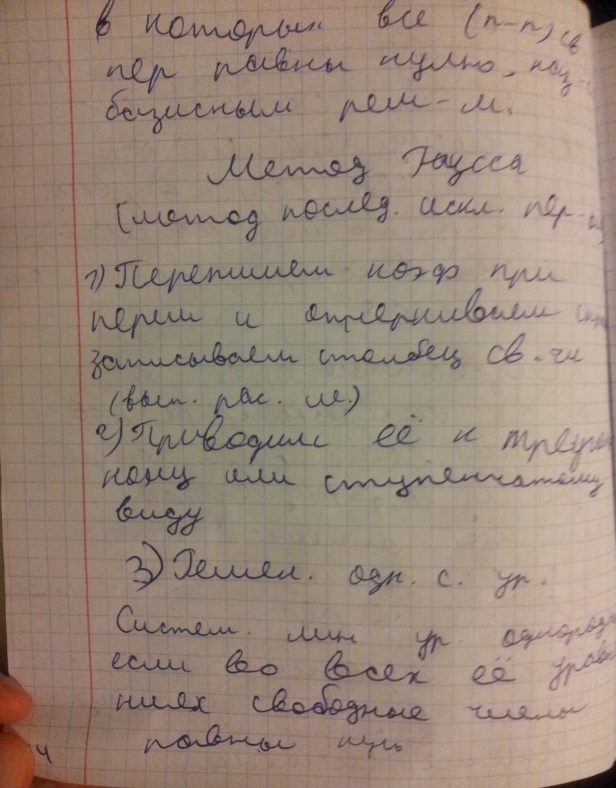 в которых все (n-n) св
пер равны нулю, наз-
базисным реш-м.
Метод Гаусса
(метод послед. искл. пер-
1) Перепишем коэф при
перем и отчеркиваем
записываем столбец св. чл
(вып. рас. м.)
2) Приводим её к треуголь
ному или ступенчатому
виду
3) Решен. одн. с. ур.
Систем. лин ур. однородн
если во всех её уравне
ниях свободные члены
равны нулю